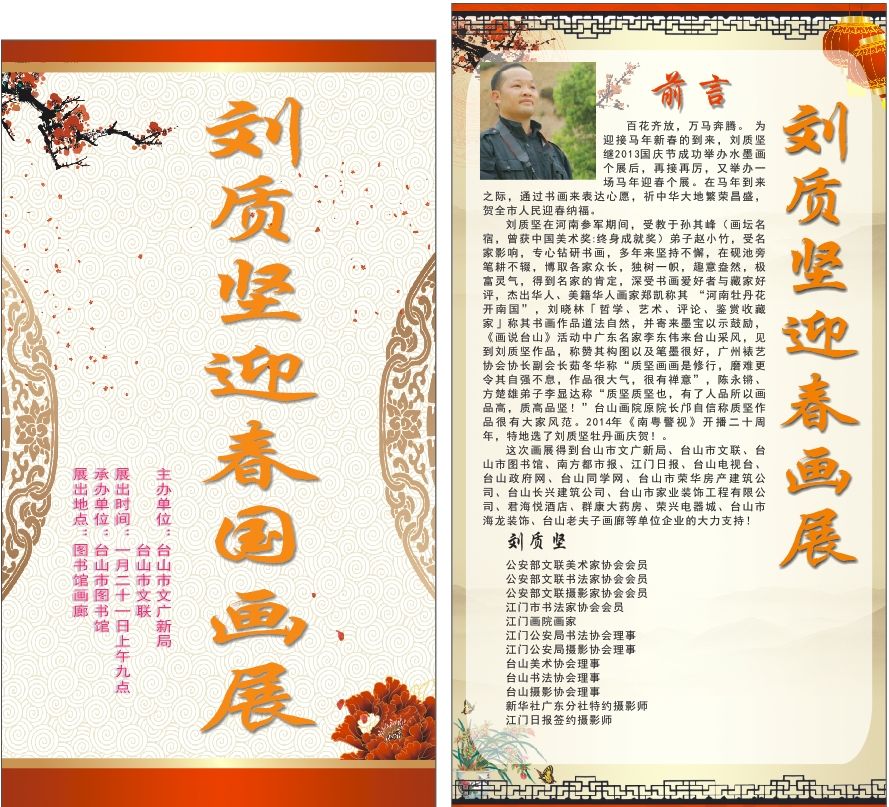 刘质坚迎春国画展
主办单位：台山市文广新局
台山市文联
展出时间：一月二十一日上午九点
承办单位：台山市图书馆
展出地点：图书馆画廊
前言
刘质坚迎春画展
百花齐放，万马奔腾。为
迎接马年新春的到来，刘质坚
继2013国庆节成功举办水墨画
个展后，再接再厉，又举办一
场马年迎春个展。在马年到来
之际，通过书画来表达心愿，祈中华大地繁荣昌盛，
贺全市人民迎春纳福。
刘质坚在河南参军期间，受教于孙其峰（画坛名
宿，曾获中国美术奖:终身成就奖）弟子赵小竹，受名
家影响，专心钻研书画，多年来坚持不懈，在砚池旁
笔耕不辍，博取各家众长，独树一帜，趣意盎然，极
富灵气，得到名家的肯定，深受书画爱好者与藏家好
评，杰出华人、美籍华人画家郑凯称其“河南牡丹花
开南国”，刘晓林「哲学、艺术、评论、鉴赏收藏
家」称其书画作品道法自然，并寄来墨宝以示鼓励，
《画说台山》活动中广东名家李东伟来台山采风，见
到刘质坚作品，称赞其构图以及笔墨很好，广州裱艺
协会协长副会长茹冬华称“质坚画画是修行，磨难更
令其自强不息，作品很大气，很有禅意”，陈永锵、
方楚雄弟子李显达称“质坚质坚也，有了人品所以画
品高，质高品坚！”台山画院原院长邝自信称质坚作
品很有大家风范。2014年《南粤警视》开播二十周
年，特地选了刘质坚牡丹画庆贺！。
这次画展得到台山市文广新局、台山市文联、台
山市图书馆、南方都市报、江门日报、台山电视台、
台山政府网、台山同学网、台山市荣华房产建筑公
司、台山长兴建筑公司、台山市家业装饰工程有限公
司、君海悦酒店、群康大药房、荣兴电器城、台山市
海龙装饰、台山老夫子画廊等单位企业的大力支持！
刘质坚
公安部文联美术家协会会员
公安部文联书法家协会会员
公安部文联摄影家协会会员
江门市书法家协会会员
江门画院画家
江门公安局书法协会理事
江门公安局摄影协会理事
台山美术协会理事
台山书法协会理事
台山摄影协会理事
新华社广东分社特约摄影师
江门日报签约摄影师